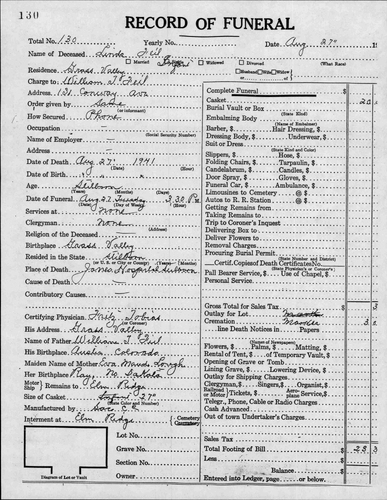 130
RECORD OF FUNERAL
Total No. 130 Yearly No. Date Aug 27"
Name of Deceased Linda Feil
Married Widowed Divorced (What Race)
Residence Grass Valley
Husband Wife or Widow of
Charge to William T. Feil
Address 131 Conway Ave
Order given by Same
(or informant)
How Secured Phone
Occupation –
(Social Security Number)
Name of Employer
Address –
Date of Death Aug 27" 1941
Date of Birth
Age Stillborn
(Years) (Months) (Days)
Date of Funeral Aug 27 3.30 P.M.
(Date) (Day of Week) (Hour)
Services at None
Clergyman None
Religion of the Deceased
Birthplace Grass Valley
Resided in the State Stillborn
(or U. S. or City or County)
Place of Death Jones Hospital
Cause of Death –
Contributory Causes
Certifying Physician Fritz Tobias
(or Coroner)
His Address Grass Valley
Name of Father William T. Feil
His Birthplace Colorado
Maiden Name of Mother Eva Maude
Her Birthplace
Motor Ship Remains to Elm Ridge
Size of Casket 27"
Manufactured by
Interment at Elm Ridge Cemetery Crematory
Lot No.
Grave No.
Section No.
Owner
Diagram of Lot or Vault
Complete Funeral
Casket 20
Burial Vault or Box
(State Kind)
Embalming Body
(Name of Embalmer)
Barber, $ Hair Dressing, $
Dressing Body, $ Underwear, $
Suit or Dress
(State Kind and Color)
Slippers, $ Hose, $
Folding Chairs, $ Tarpaulin, $
Candelabrum, $ Candles, $
Door Spray, $ Gloves, $
Funeral Car, $ Ambulance, $
Limousines to Cemetery @ $
Autos to R. R. Station @ $
Getting Remains from
Taking Remains to
Trip to Coroner's Inquest
Delivering Box to
Deliver Flowers to
Removal Charges
Procuring Burial Permit
(State Number and District)
Certif. Copies of Death Certificate No.
(State Physician's or Coroner's)
Pall Bearer Service, $ Use of Chapel, $
Personal Service
Gross Total for Sales Tax
Outlay for Lot
Cremation
line Death Notices in Papers
(Names of Newspapers)
Flowers, $ Palms, $ Matting, $
Rental of Tent, $ of Temporary Vault, $
Opening of Grave or Tomb
Lining Grave, $ Lowering Device, $
Outlay for Shipping Charges
Clergyman, $ Singers, $ Organist, $
Telegr., Phone, Cable or Radio Charges
Cash Advanced
Out of town Undertaker's Charges
Sales Tax
Total Footing of Bill
Less
Balance
Entered into Ledger, page or below.